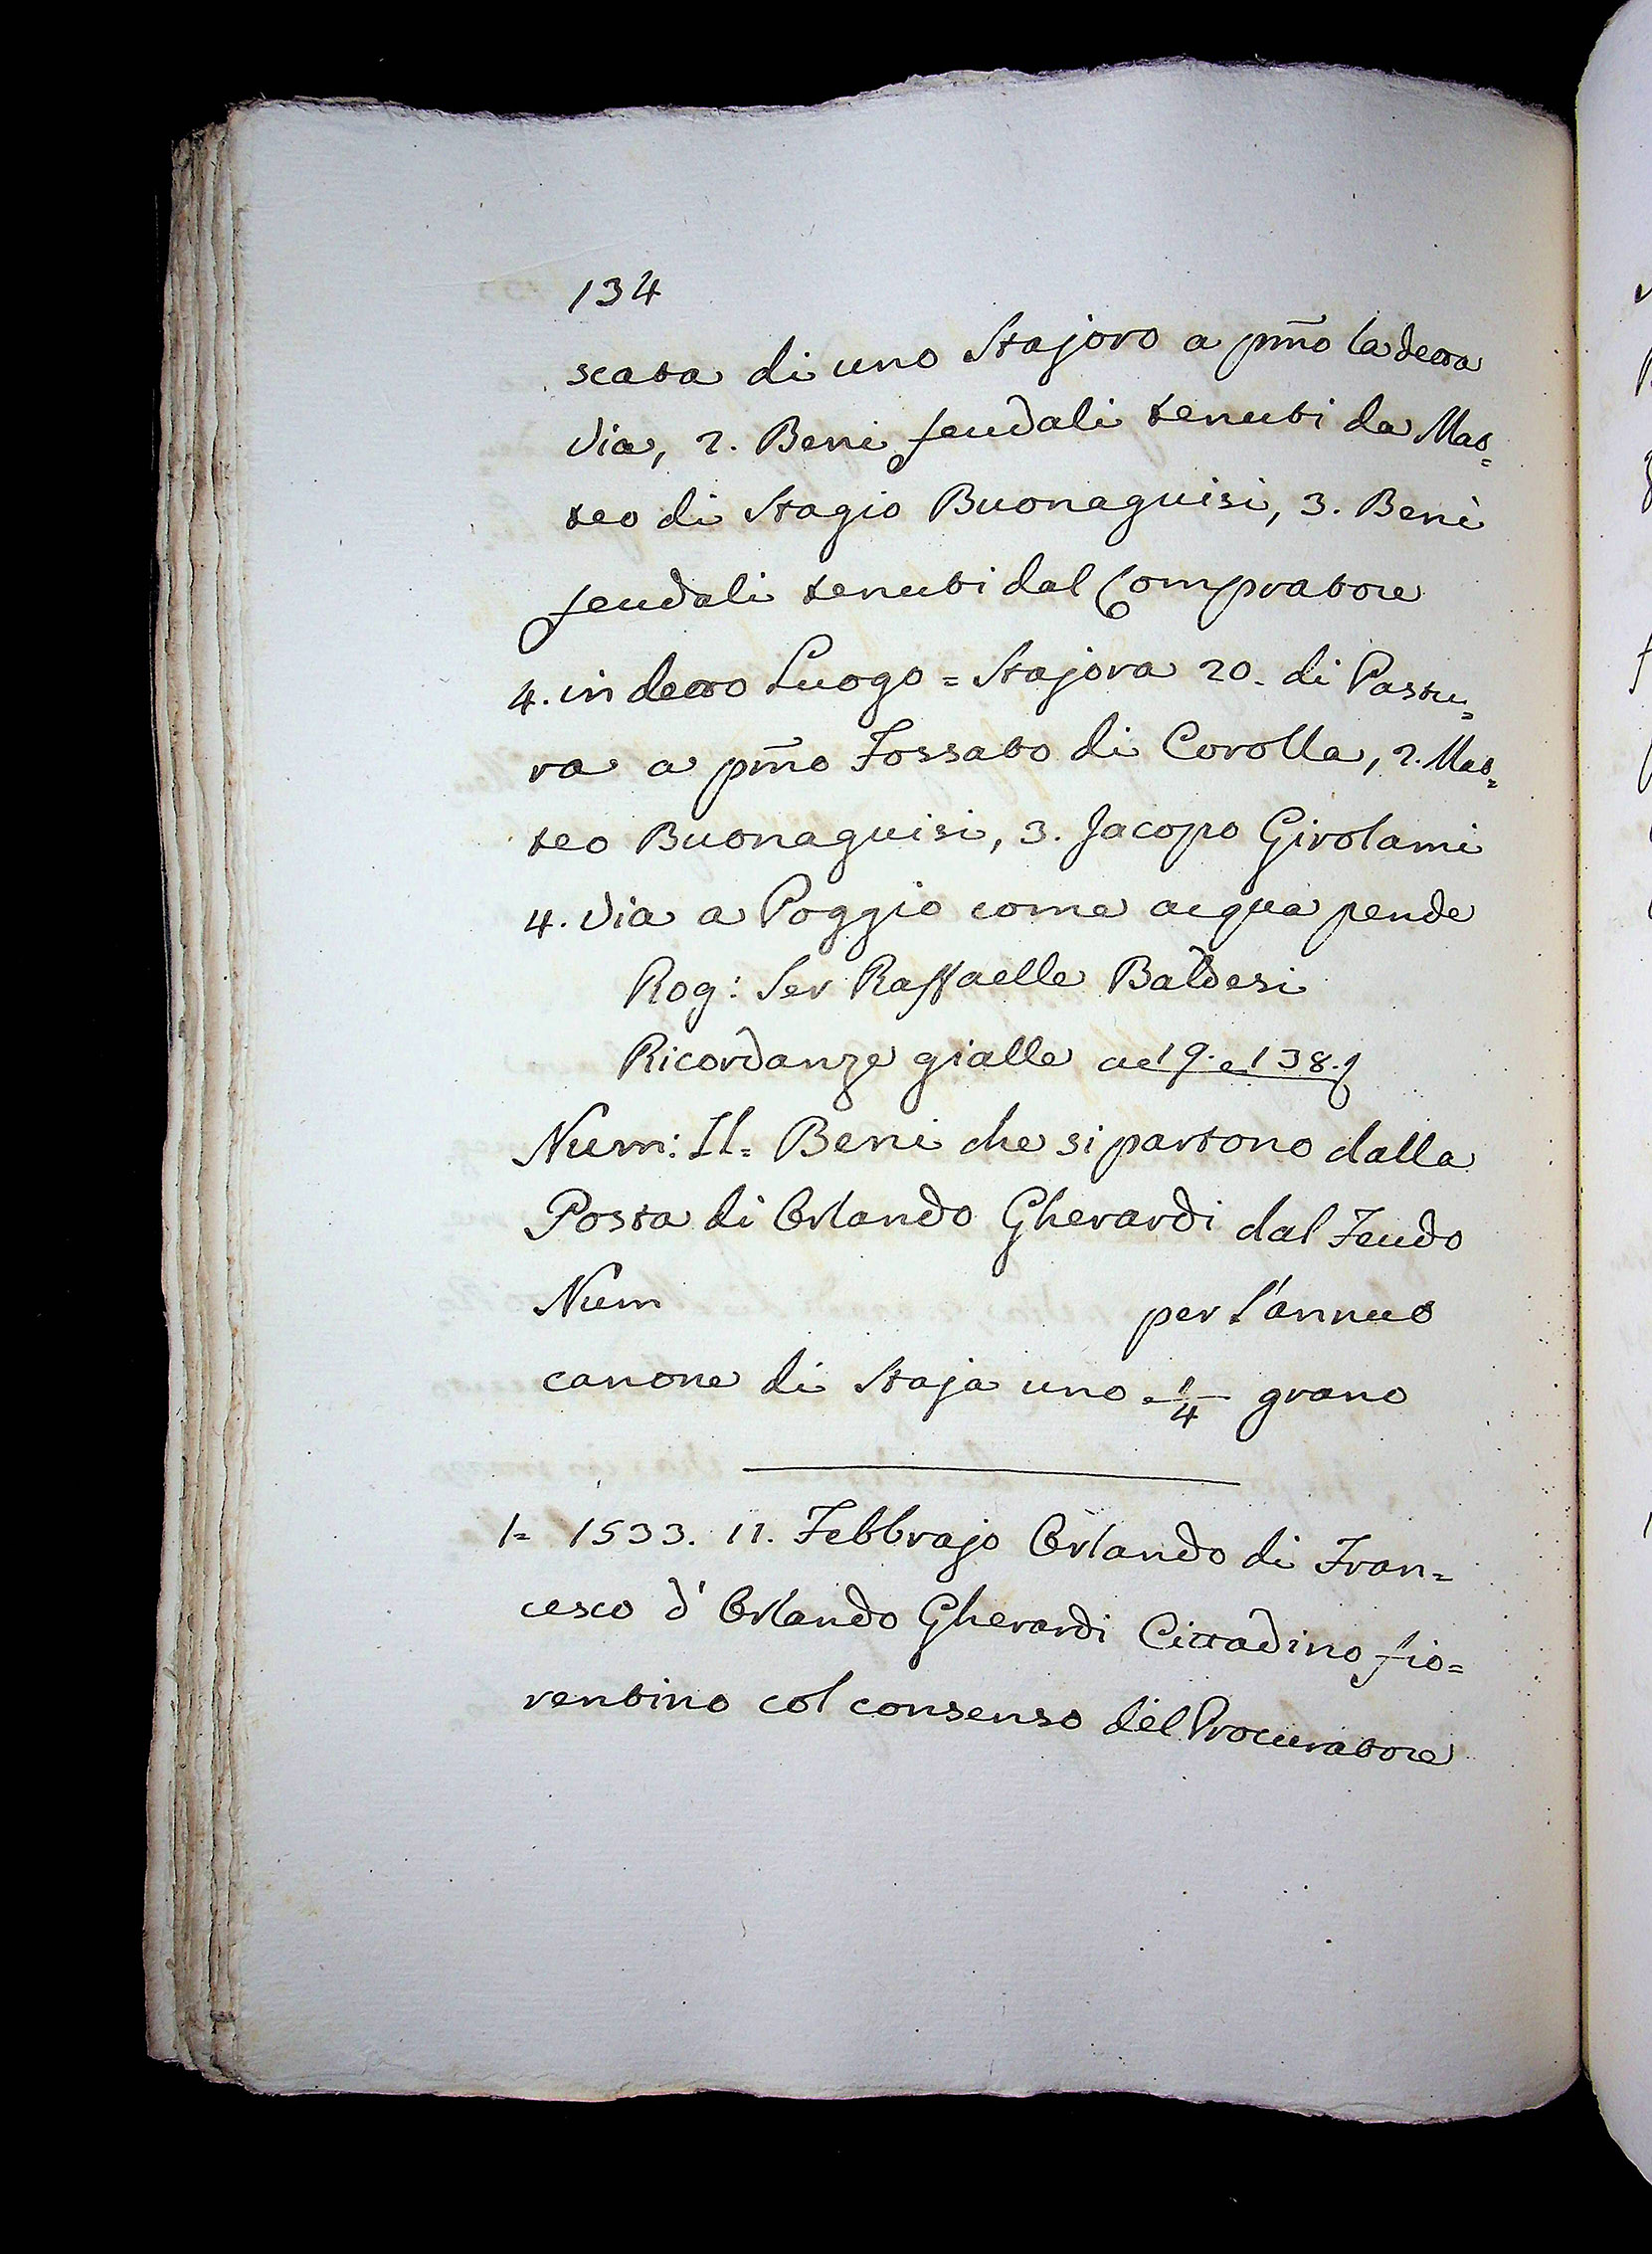 134
scata di uno Stajoro a pm̃o la detta
via, 2. Beni feudali tenuti da Mat=
teo di Stagio Buonaguisi, 3. Beni
feudali tenuti dal Compratore
4. in detto Luogo = Stajora 20. di Pastu=
ra a pm̃o Fossato di Corolla, 2. Mat=
teo Buonaguisi, 3. Jacopo Girolami
4. via a Poggio come acqua pende
Rog: Ser Raffaelle Baldesi
Ricordanze gialle ac 19. e 138.
Num: II. = Beni che si partono dalla
Posta di Orlando Gherardi dal Feudo
Num per l'annuo
canone di Staja uno e 1/4 grano
1= 1533. 11. Febbrajo Orlando di Fran=
cesco d'Orlando Gherardi Cittadino fio=
rentino col consenso del Procuratore